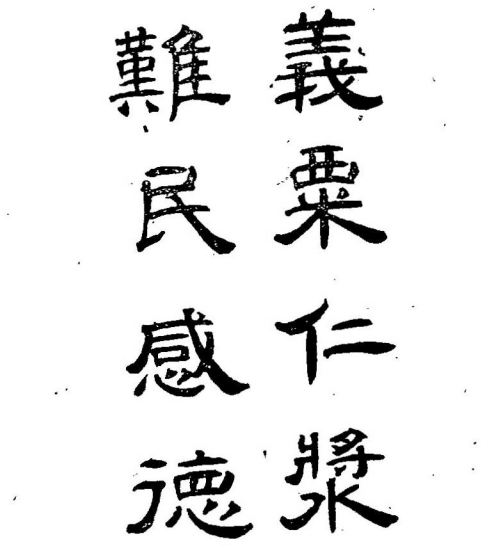 義粟仁漿
難民感德